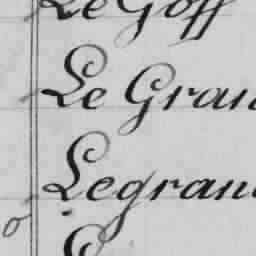 Le Goff
Le Gran
Legran